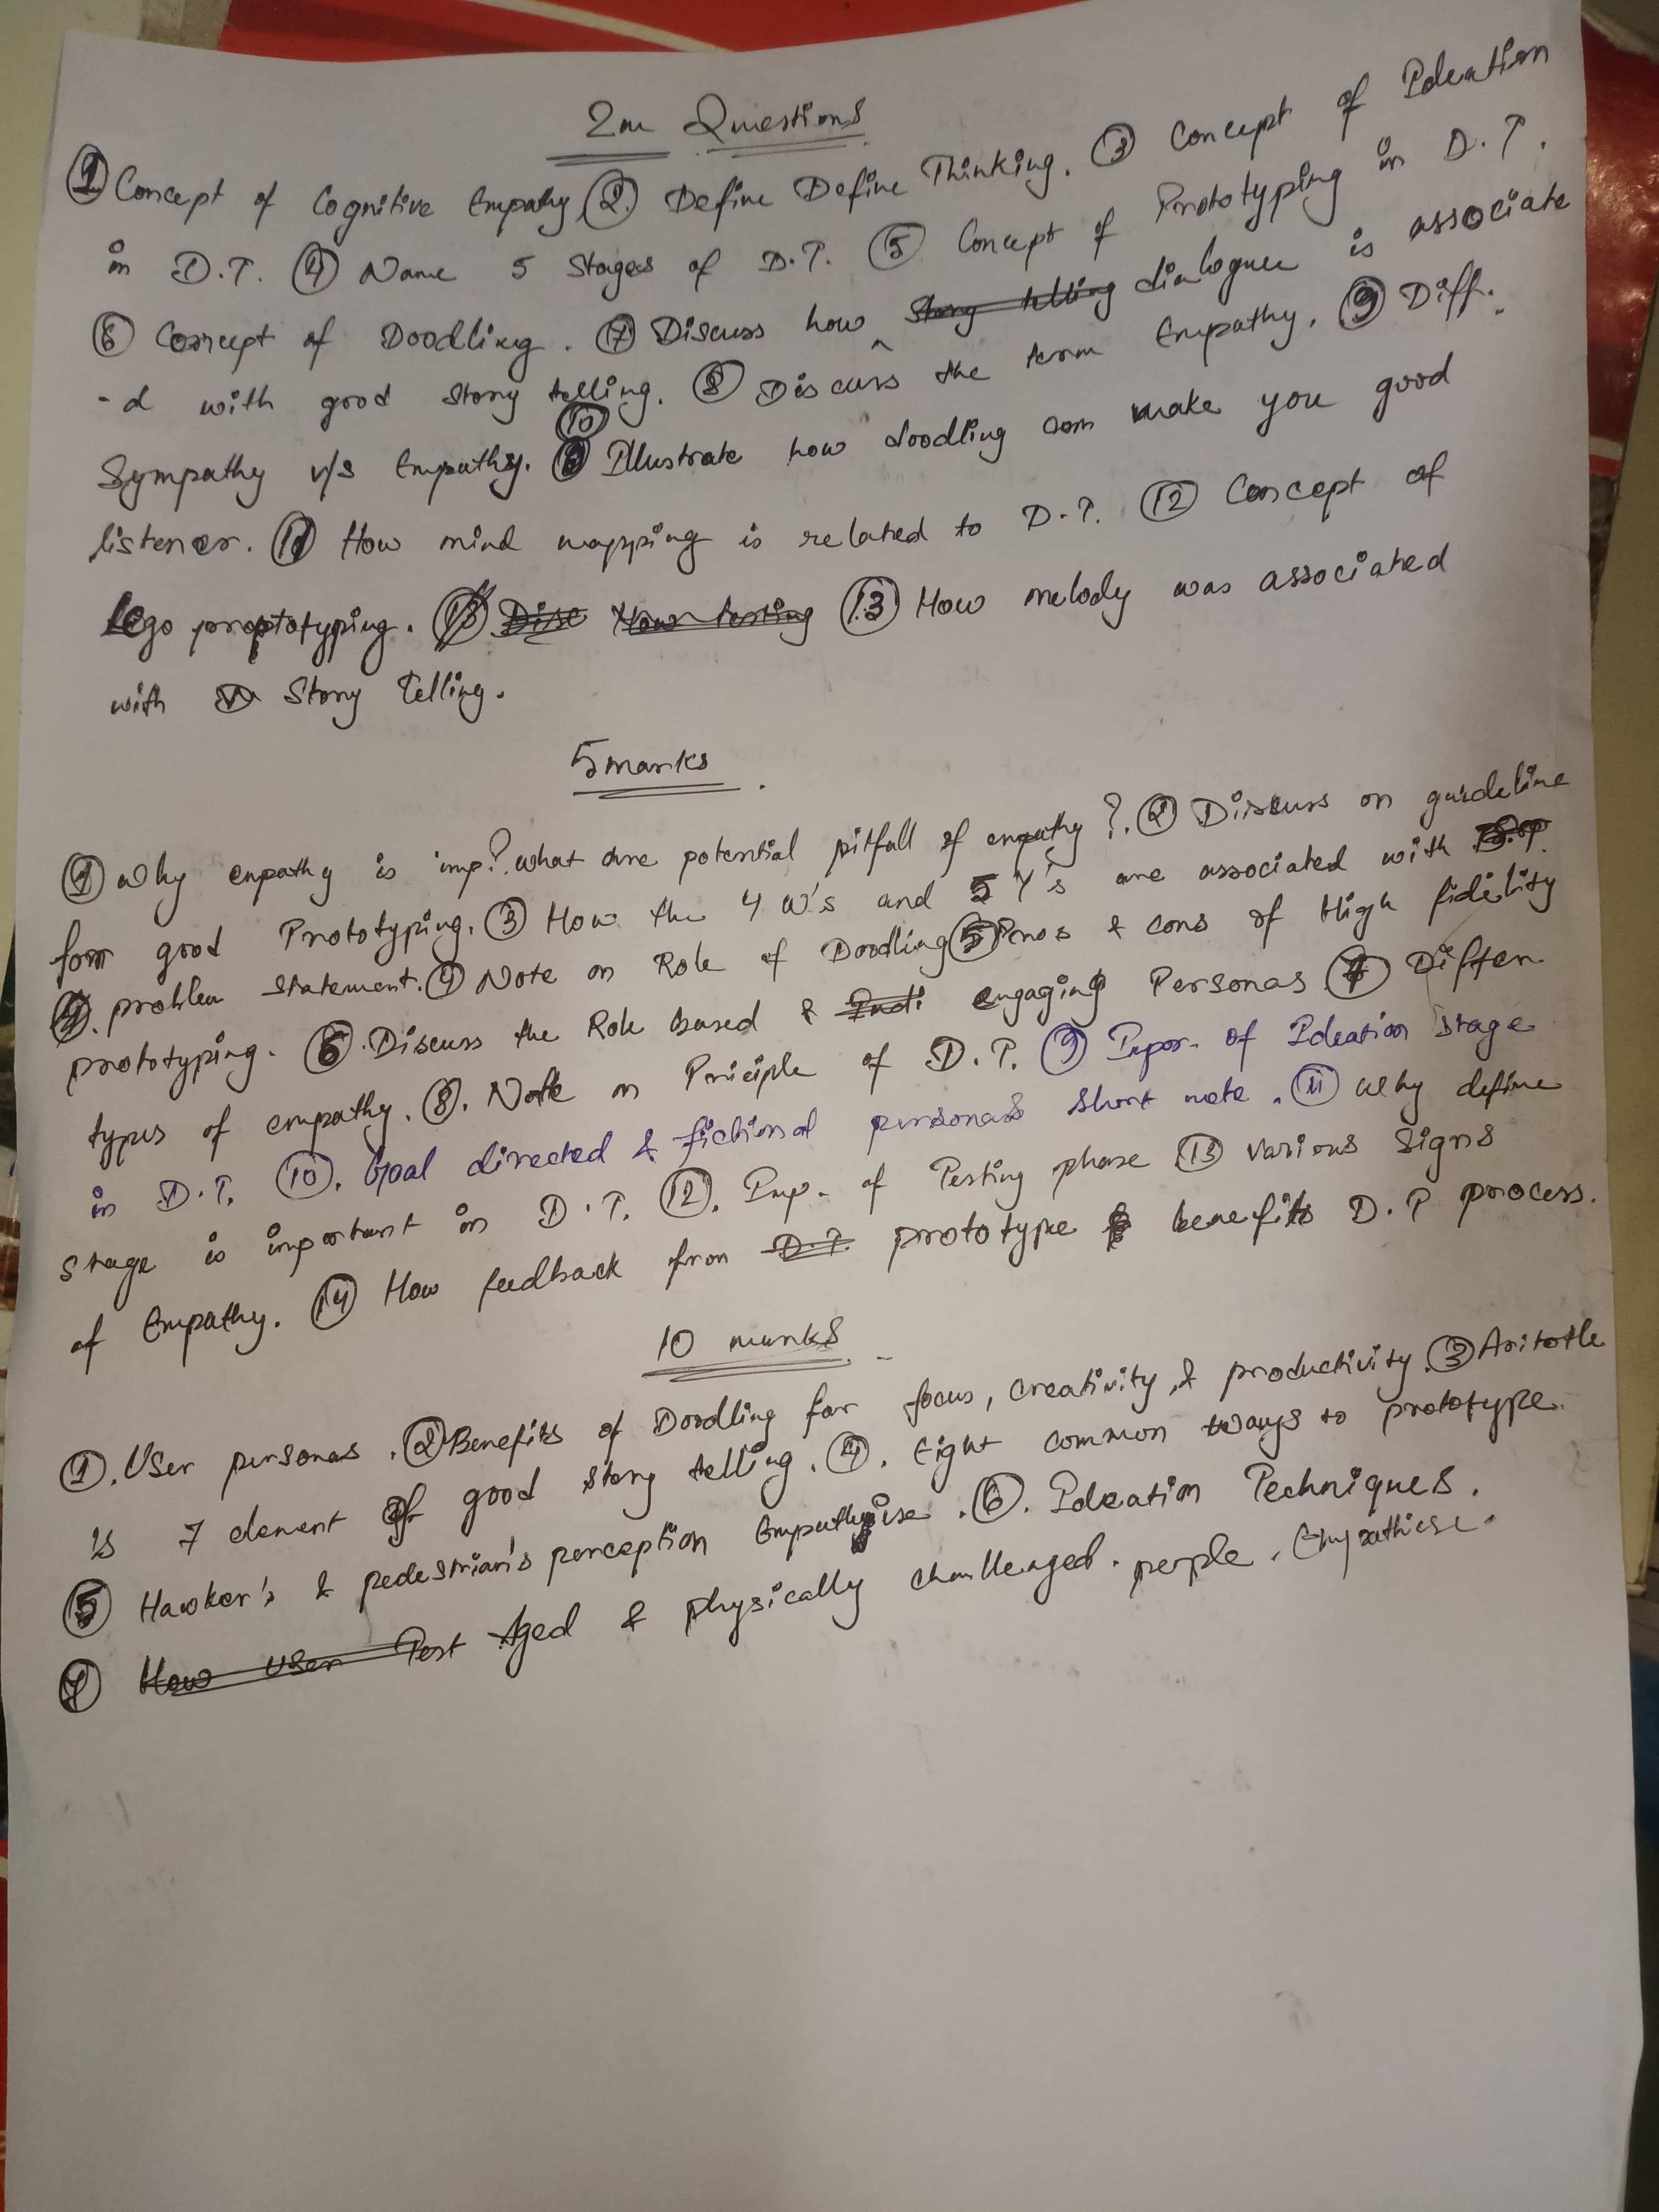 2m Questions
① Concept of Cognitive Empathy ②. Define Define Thinking. ③ Concept of Ideation
in D.T. ④ Name 5 Stages of D.T. ⑤ Concept of Prototyping in D.T.
⑥ Concept of Doodling. ⑦ Discuss how Story telling dialogue is associate
-d with good story telling. ⑧ Discuss the term Empathy. ⑨ Diff.
Sympathy v/s Empathy. ⑩ Illustrate how doodling can make you good
listener. ⑪ How mind mapping is related to D.T. ⑫ Concept of
Lego prototyping. ⑬ Disc How testing ⑬ How melody was associated
with Story Telling.
5 marks.
① Why empathy is imp? what are potential pitfall of empathy?. ② Discuss on guideline
for good Prototyping. ③ How the 4 W's and 5 Y's are associated with
④. problem statement. ④ Note on Role of Doodling ⑤ Pros & cons of High fidelity
prototyping. ⑥. Discuss the Role based & engaging Personas ⑦ Differ.
types of empathy. ⑧. Note on Priciple of D.T. ⑨ Impor. of Ideation Stage
in D.T. ⑩. Goal directed & fictional personas short note. ⑪ Why define
stage is important in D.T. ⑫. Imp. of Testing phase ⑬ various Signs
of Empathy. ⑭ How feedback from D.T. prototype benefits D.T process.
10 marks
①. User personas. ② Benefits of Doodling for focus, creativity, & productivity. ③ Aritotle
's 7 element of good story telling. ④. Eight common ways to prototype.
⑤ Hawker's & pedestrian's perception Empathyise. ⑥. Ideation Techniques.
⑦ How User Test Aged & physically challenged. people. Empathise.